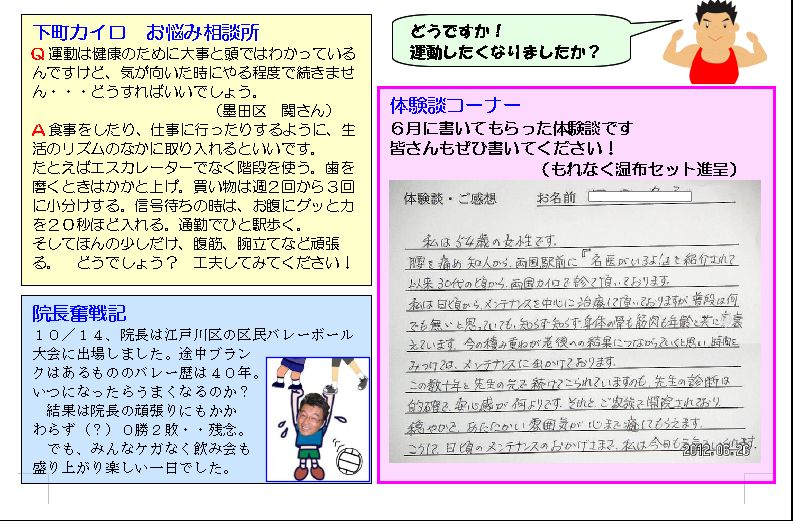 下町カイロ　お悩み相談所
Q 運動は健康のために大事と頭ではわかっている
んですけど、気が向いた時にやる程度で続きませ
ん・・・どうすればいいでしょう。
（墨田区　関さん）
A 食事をしたり、仕事に行ったりするように、生
活のリズムのなかに取り入れるといいです。
たとえばエスカレーターでなく階段を使う。歯を
磨くときはかかと上げ。買い物は週２回から３回
に小分けする。信号待ちの時は、お腹にグッと力
を２０秒ほど入れる。通勤でひと駅歩く。
そしてほんの少しだけ、腹筋、腕立てなど頑張
る。　どうでしょう？　工夫してみてください！
院長奮戦記
１０／１４、院長は江戸川区の区民バレーボール
大会に出場しました。途中ブラン
クはあるもののバレー歴は４０年。
いつになったらうまくなるのか？
結果は院長の頑張りにもかか
わらず（？）０勝２敗・・残念。
でも、みんなケガなく飲み会も
盛り上がり楽しい一日でした。
どうですか！
運動したくなりましたか？
体験談コーナー
６月に書いてもらった体験談です
皆さんもぜひ書いてください！
（もれなく湿布セット進呈）
体験談・ご感想　お名前
私は54歳の女性です。
腰を痛め知人から、両国駅前に『名医がいるよ!』を紹介されて
以来30代の頃から、両国カイロで診て頂いております。
私は日頃から、メンテナンスを中心に治療して頂いておりますが普段は何
でも無いと思っていても、知らず知らず身体の骨も筋肉も年齢と共に衰
えています。今の積み重ねが老後への結果につながっていくと思い、時間を
みつけては、メンテナンスに出かけております。
この数十年と先生の元で続けてこられていますのも、先生の診断は
的確で、安心感が何よりです。それと、ご家族で開院されており
穏やかで、あたたかい雰囲気が心まで癒してもらえます。
こうして日頃のメンテナンスのおかげさまで、私は今日も
2012.06.26